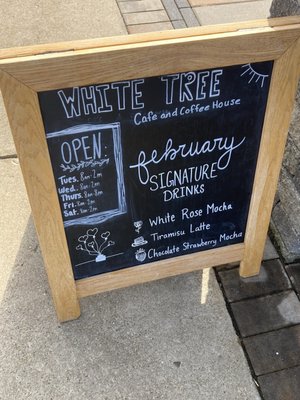 WHITE TREE
Cafe and Coffee House
OPEN:
Tues. 8am-2pm
Wed. 8am-2pm
Thurs. 8am-2pm
Fri. 8am-2pm
Sat. 8am-2pm
february
SIGNATURE
DRINKS
White Rose Mocha
Tiramisu Latte
Chocolate Strawberry Mocha